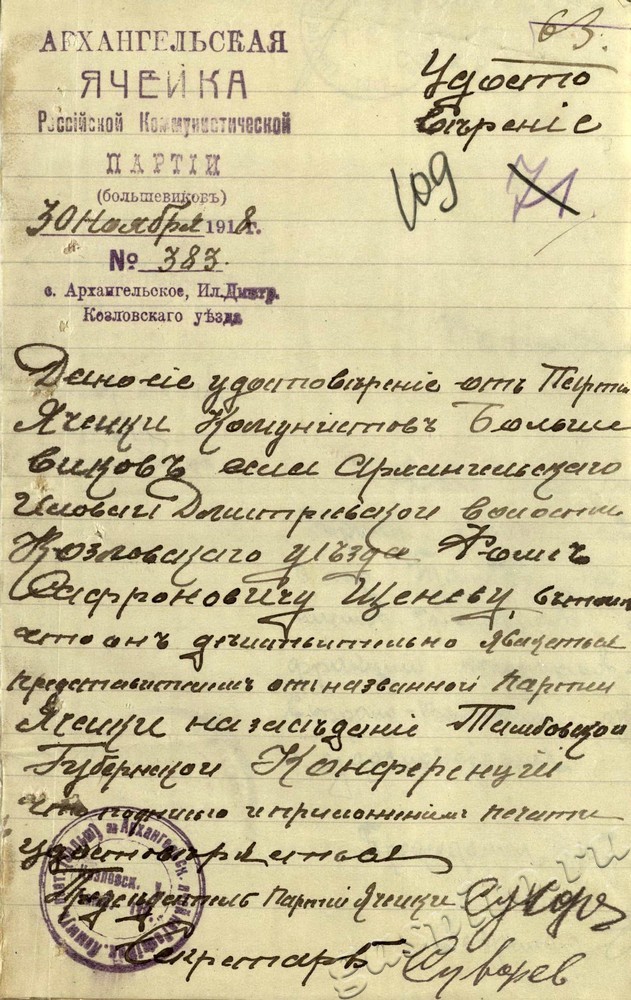 63.
АРХАНГЕЛЬСКАЯ
ЯЧЕЙКА
Россійской Коммунистической
ПАРТІИ
(большевиковъ)
30 Ноября 1918 г.
№ 383.
с. Архангельское, Ил.Дмитр.
Козловскаго уѣзда
Удосто
вѣреніе
109
71
Дано сіе удостовѣреніе отъ Парти
Ячейки Комунистовъ Больше
виковъ села Архангельскаго
Иловай Дмитріевской волости
Козловскаго уѣзда Фомѣ
Сафроновичу Щеневу, въ томъ
что онъ действительно является
представителемъ отъ названной партіи
Ячейки на засѣданіе Тамбовской
Губернской Конференціи
что подписью и приложеніемъ печати
удостовѣряется
Председатель Партіи Ячейки
Секретарь Суворев